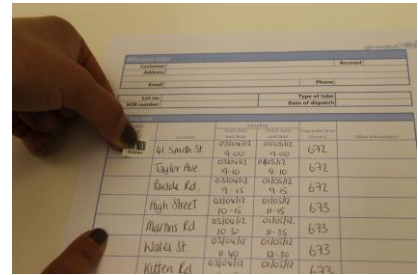 Diffusion tubes
Customer
Account
Address
Email
Phone
Lot no
SOR number
Type of tube
Date of dispatch
Location
Start date and time
Exposure time (hours)
Other information
41. Smith St. 03/04/12 9-00 01/05/12 9-00 672
Taylor Ave 03/04/12 9-10 01/05/12 9-10 672
03/04/12 9-15 01/05/12 9-15 672
High Street 03/04/12 10-15 01/05/12 11-15 673
Martins Rd 03/04/12 10-30 01/05/12 11-35 673
Wales St. 03/04/12 11-40 01/05/12 12-30 673
Kitten Rd 03/04/12 01/05/12 673